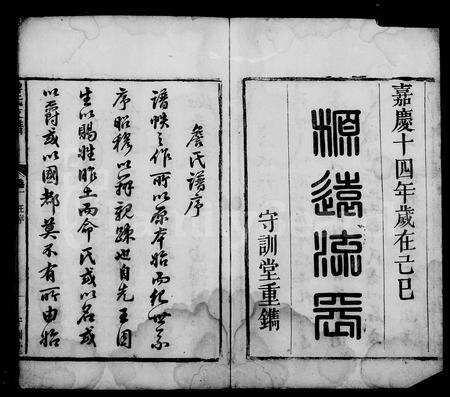 嘉慶十四年歲在己巳
源遠流長
守訓堂重鐫
詹氏譜序
譜帙之作所以原本始而紀世系
序昭穆以辨親疎也自先王因
生以賜姓胙土而命氏或以名或
以爵或以國都莫不有所由始